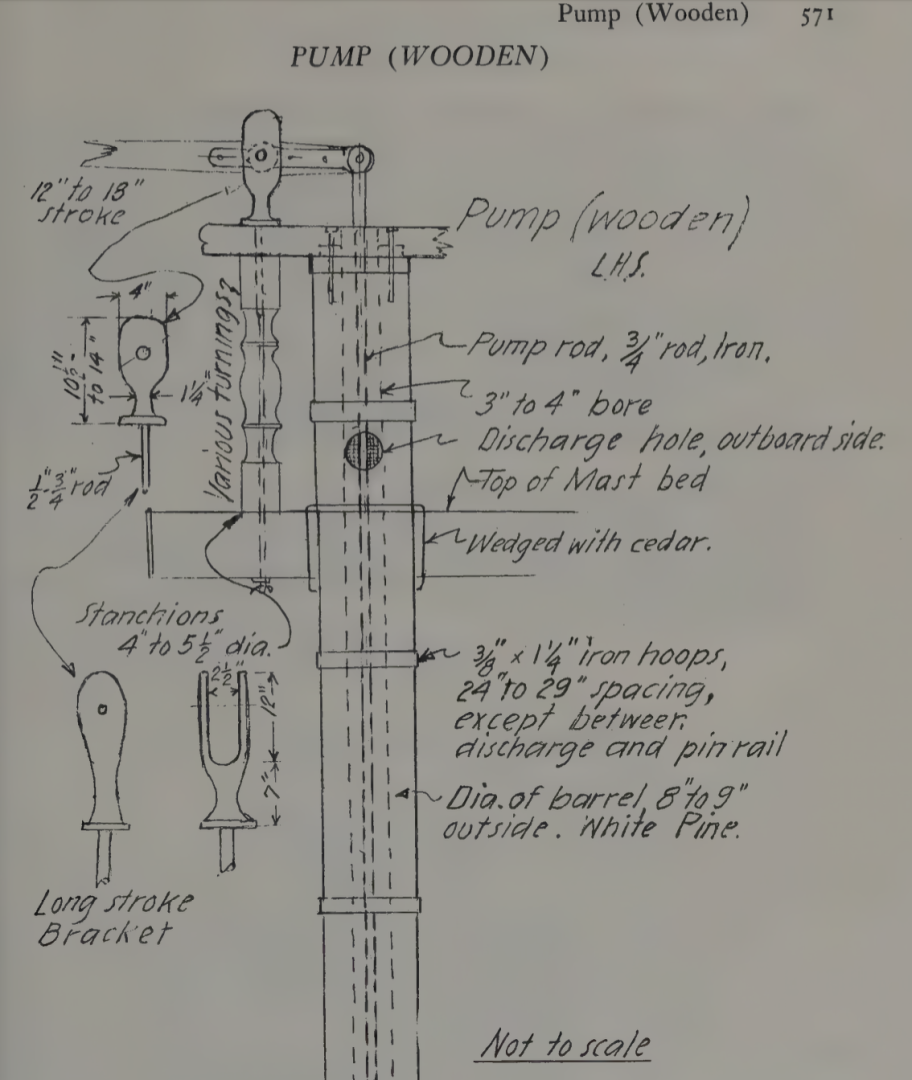 Pump (Wooden) 571
PUMP (WOODEN)
12" to 18"
stroke
Pump (wooden)
L.H.S.
4"
10½"
to 14"
1¼"
Various turnings
Pump rod, ¾" rod, iron.
3" to 4" bore
Discharge hole, outboard side.
Top of Mast bed
½"-¾" rod
Wedged with cedar.
Stanchions
4" to 5½" dia.
2½"
12"
7"
⅜" x 1¼" iron hoops,
24" to 29" spacing,
except between
discharge and pin rail
Dia. of barrel, 8" to 9"
outside. White Pine.
Long stroke
Bracket
Not to scale